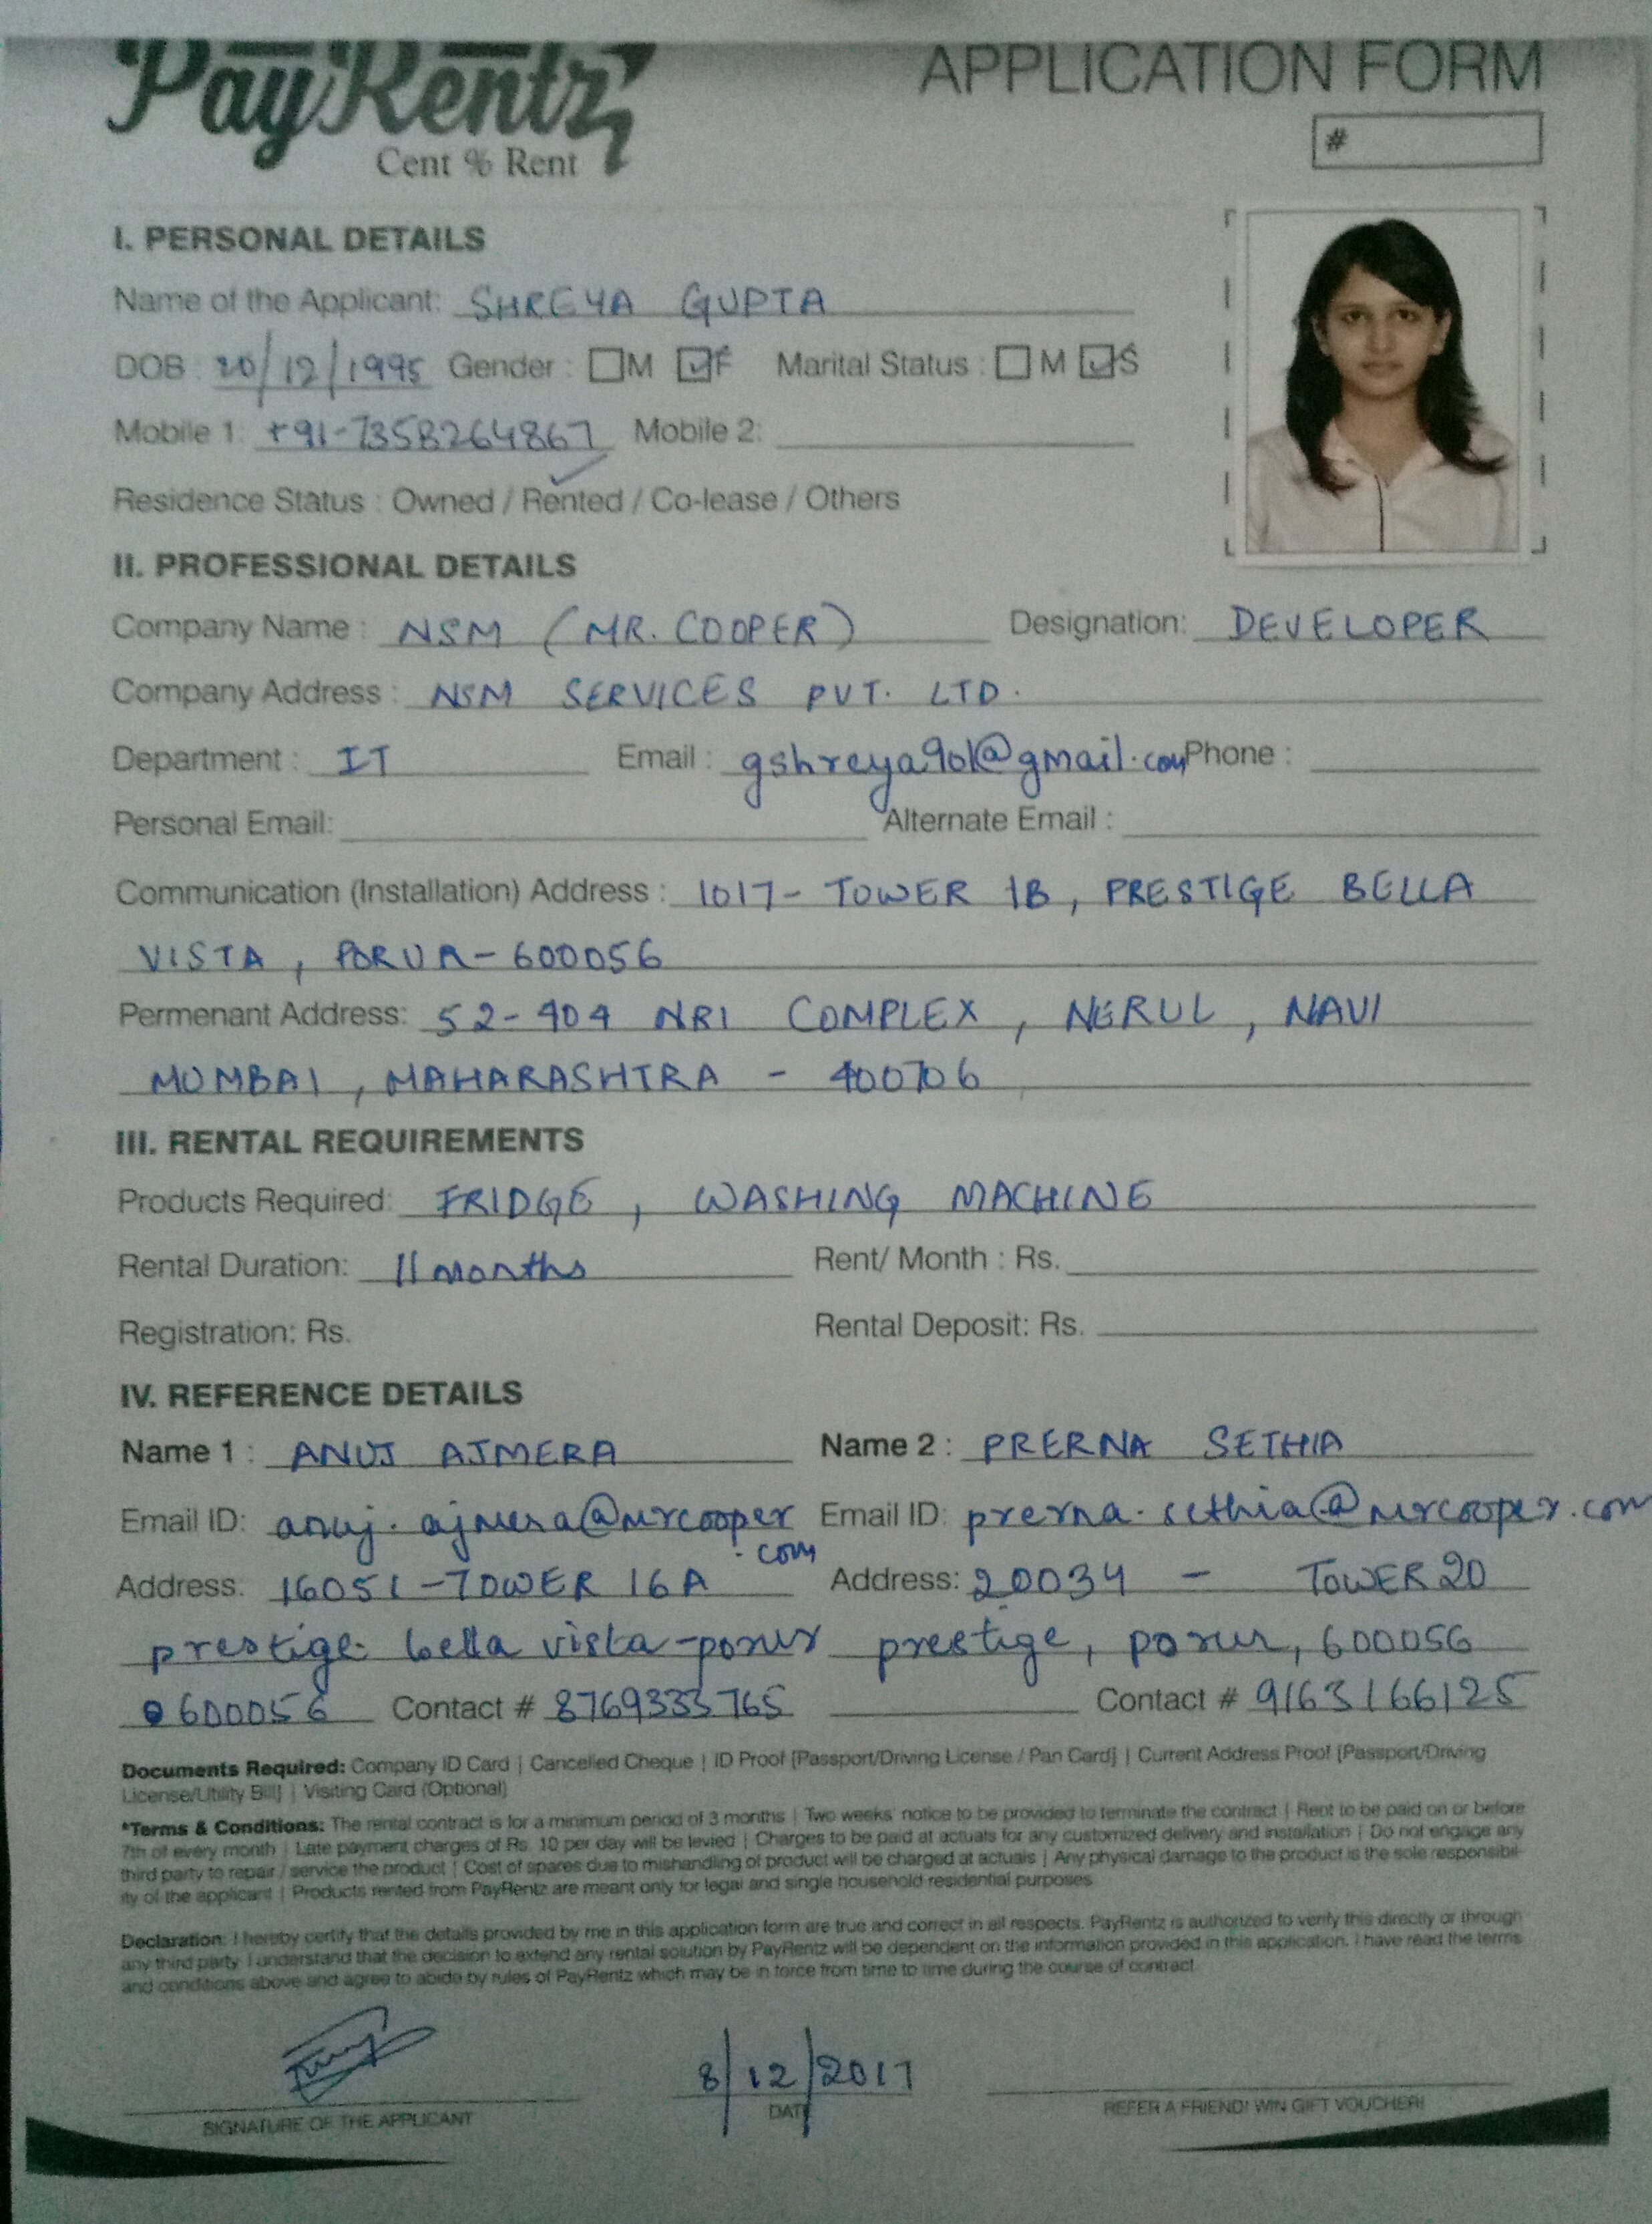 PayRentz
Cent % Rent
APPLICATION FORM
#
I. PERSONAL DETAILS
Name of the Applicant: SHREYA GUPTA
DOB : 20/12/1995 Gender : M F Marital Status : M S
Mobile 1: +91-7358264867 Mobile 2:
Residence Status : Owned / Rented / Co-lease / Others
II. PROFESSIONAL DETAILS
Company Name : NSM (MR. COOPER) Designation: DEVELOPER
Company Address : NSM SERVICES PVT. LTD.
Department : IT Email : gshreya901@gmail.com Phone :
Personal Email: Alternate Email :
Communication (Installation) Address : 1017- TOWER 1B, PRESTIGE BELLA
VISTA, PORUR-600056
Permenant Address: 52-404 NRI COMPLEX, NERUL, NAVI
MUMBAI, MAHARASHTRA - 400706
III. RENTAL REQUIREMENTS
Products Required: FRIDGE, WASHING MACHINE
Rental Duration: 11 months Rent/ Month : Rs.
Registration: Rs. Rental Deposit: Rs.
IV. REFERENCE DETAILS
Name 1 : ANUJ AJMERA Name 2 : PRERNA SETHIA
Email ID: anuj.ajmera@mrcooper.com Email ID: prerna.sethia@mrcooper.com
Address: 16051-TOWER 16A Address: 20034 - TOWER 20
prestige bella vista-porur prestige, porur, 600056
600056 Contact # 8769333765 Contact # 9163166125
Documents Required: Company ID Card | Cancelled Cheque | ID Proof [Passport/Driving License / Pan Card] | Current Address Proof [Passport/Driving
License/Utility Bill] | Visiting Card (Optional)
*Terms & Conditions: The rental contract is for a minimum period of 3 months | Two weeks' notice to be provided to terminate the contract | Rent to be paid on or before
7th of every month | Late payment charges of Rs. 10 per day will be levied | Charges to be paid at actuals for any customized delivery and installation | Do not engage any
third party to repair / service the product | Cost of spares due to mishandling of product will be charged at actuals | Any physical damage to the product is the sole responsibil-
ity of the applicant | Products rented from PayRentz are meant only for legal and single household residential purposes
Declaration: I hereby certify that the details provided by me in this application form are true and correct in all respects. PayRentz is authorized to verify this directly or through
any third party. I understand that the decision to extend any rental solution by PayRentz will be dependent on the information provided in this application. I have read the terms
and conditions above and agree to abide by rules of PayRentz which may be in force from time to time during the course of contract
8/12/2017
SIGNATURE OF THE APPLICANT DATE REFER A FRIEND! WIN GIFT VOUCHER!